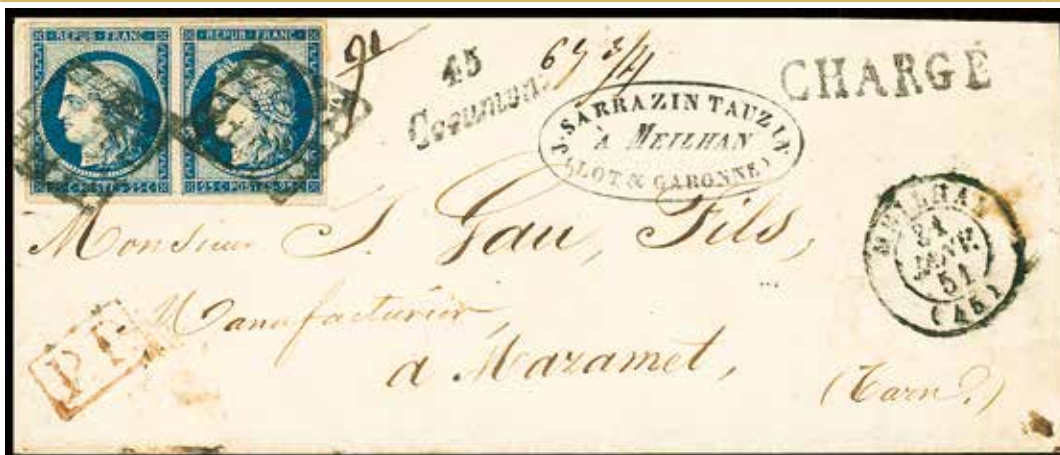 REPUB·FRANC· REPUB·FRANC·
25·C·POSTES·25·C 25·C·POSTES·25·C
45
Cocumont
CHARGÉ
J. SARRAZIN TAUZIN
À MEILHAN
(LOT & GARONNE)
MEILHAN
JANV.
51
(45)
Monsieur J. Gau, Fils,
Manufacturier,
a Mazamet,
(Tarn)